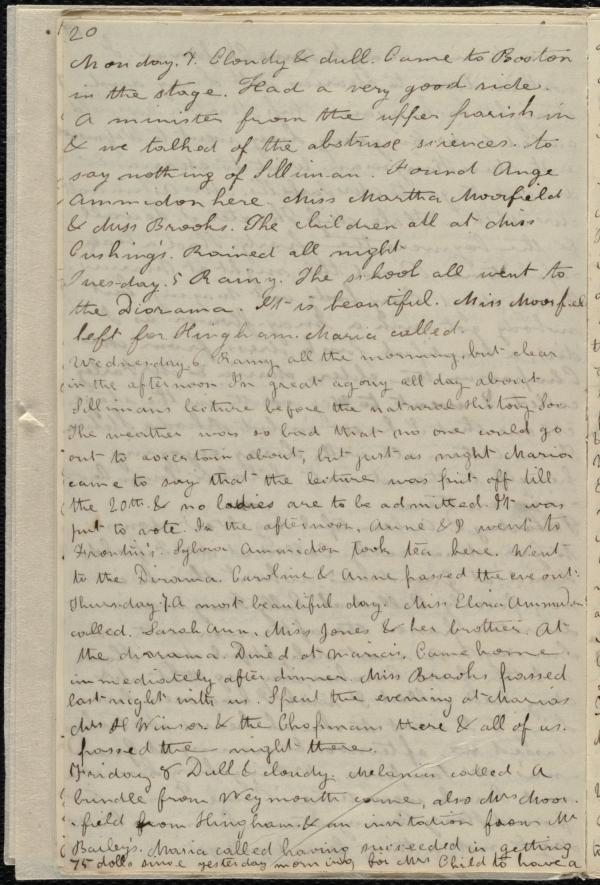 20
Monday. Cloudy & dull. Came to Boston
in the stage. Had a very good ride.
A minister from the upper parish in
& we talked of the abstruse sciences. to
say nothing of Silliman. Found Ange
Ammidon here. Miss Martha Moorfield
& Miss Brooks. The children all at Miss
Cushing's. Rained all night
Tuesday. 5 Rainy. The school all went to
the Diorama. It is beautiful. Miss Moorfield
left for Hingham. Maria called.
Wednesday 6 Rainy all the morning, but clear
in the afternoon In great agony all day about
Sillimans lecture before the natural History Soc
The weather was so bad that no one could go
out to ascertain about, but just as night Maria
came to say that the lecture was put off till
the 20th & no ladies are to be admitted. It was
put to vote. In the afternoon, Anne & I went to
Frontin's. Sylvia Ammidon took tea here. Went
to the Dirama. Caroline & Anne passed the eve out.
Thursday 7. A most beautiful day. Miss Eloria Ammidon
called. Sarah Ann. Miss Jones & her brother. At
the diorama. Dined at Maria's. Came home
immediately after dinner. Miss Brooks passed
last night with us. Spent the evening at Marias
Mrs H Winsor. & the Chapmans there & all of us.
passed the night there.
Friday 8 Dull & cloudy. Melania called A
bundle from Weymouth came, also Mrs Moor.
field from Hingham. & an invitation from Mr
Baileys. Maria called having succeeded in getting
75 dolls since yesterday morning for Mrs Child to have a